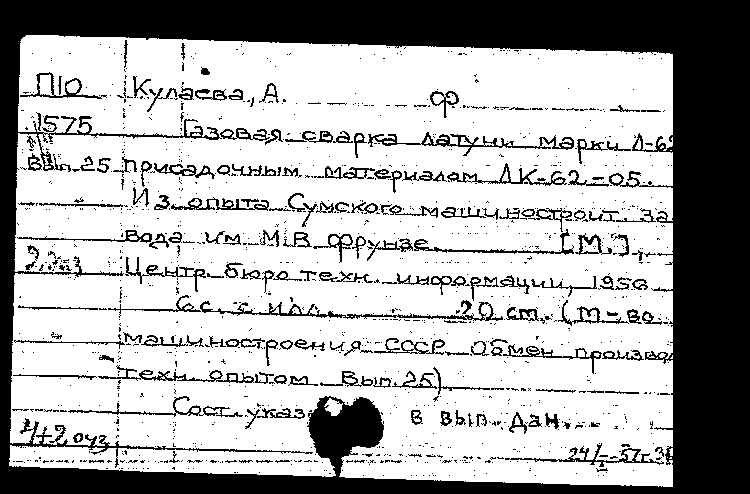 П10 Кулаева, А. ф
1575 Газовая сварка латуни марки Л-62
Вып.25 присадочным материалом ЛК-62-05.
Из опыта Сумского машиностроит. за
вода им М.В. Фрунзе. [М.],
2 экз Центр. бюро техн. информации, 1956
6 с. с илл. 20 см. (М-во
машиностроения СССР. Обмен производ
техн. опытом. Вып. 25).
Сост. указ. в вып. дан...
24/I-57г.